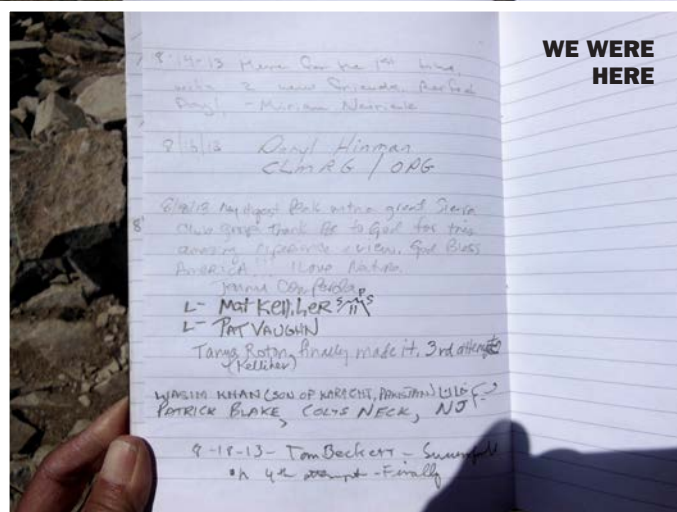 WE WERE
HERE
8-14-13 Here for the 1st time,
with 2 new friends. Perfect
Day! - Miriam
8/16/13 Daryl Hinman
CLMRG / OPG
8/18/13 My highest Peak with a great Sierra
Club group Thank Be to God for this
amazing experience & view. God Bless
AMERICA!.. I Love Nature.
L- Mat Kelliher SPS
L- PAT VAUGHN
Tanya Roton, finally made it. 3rd attempt
(Kelliher)
WASIM KHAN (SON OF KARACHI, PAKISTAN)
PATRICK BLAKE, COLTS NECK, NJ
8-18-13- Tom Beckett - Successful
on 4th attempt - Finally